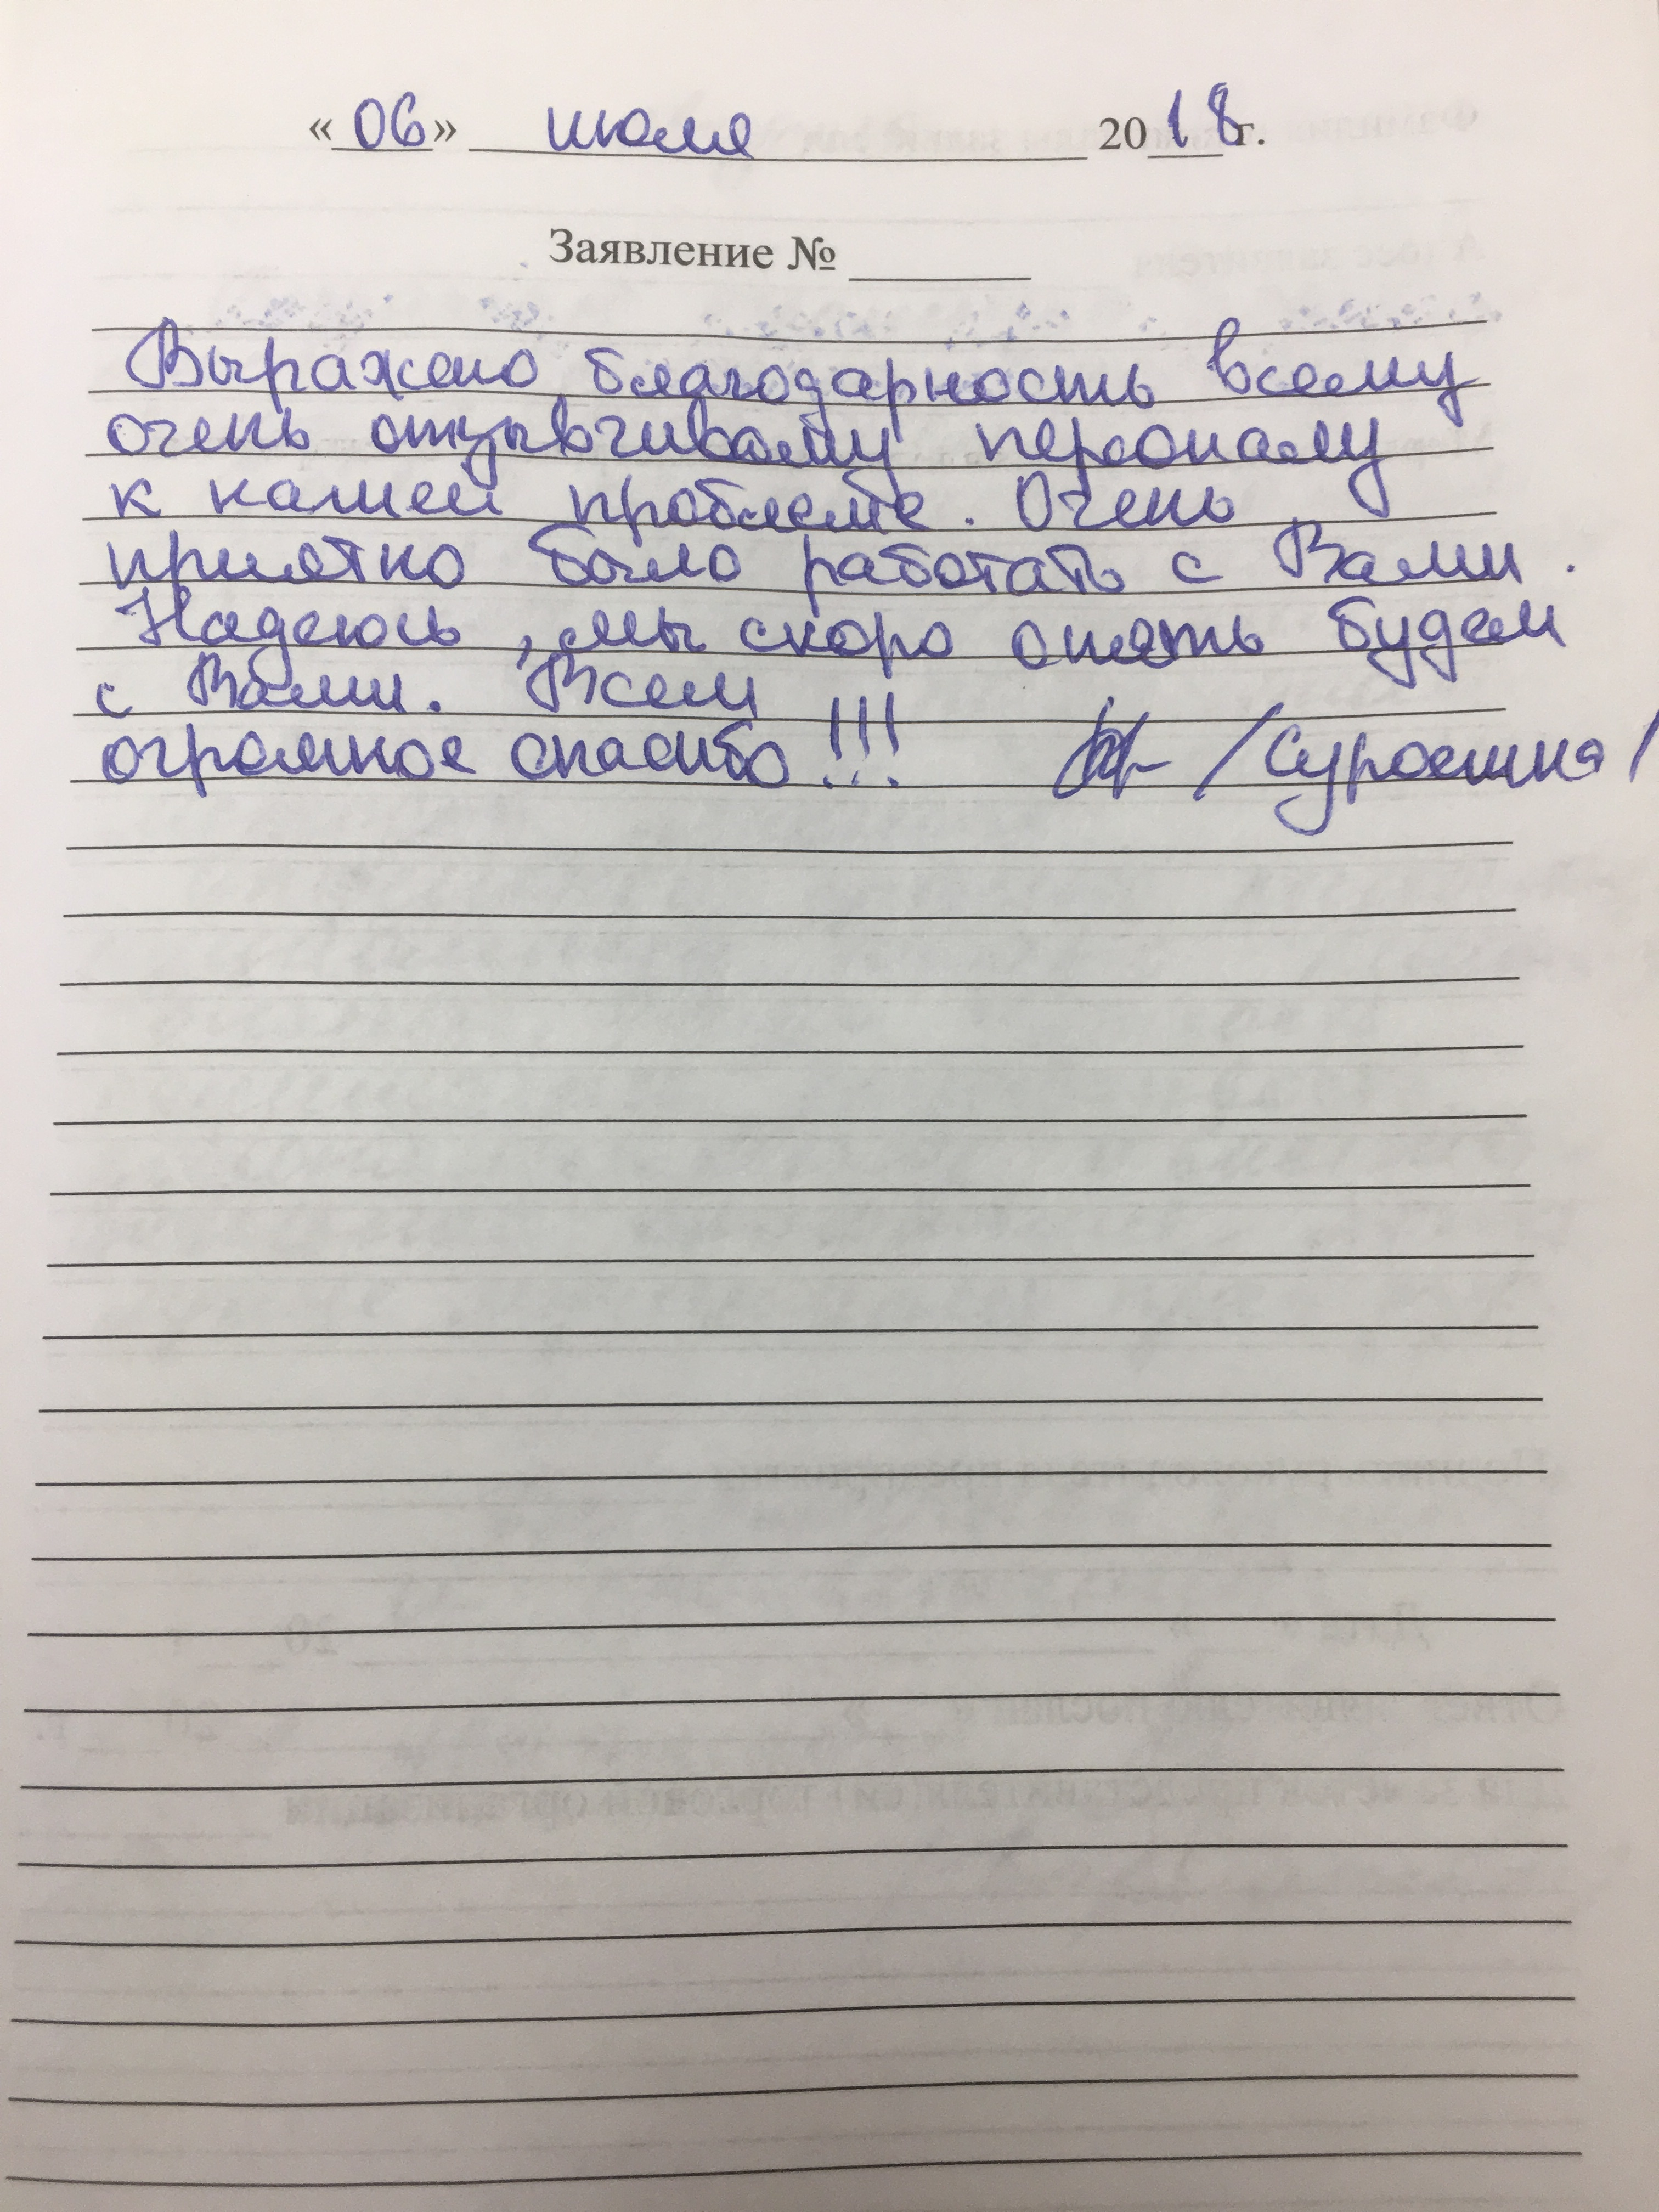 «06» июля 2018г.
Заявление №
Выражено благодарность всему
очень отзывчивому персоналу
к нашей проблеме. Очень
приятно было работать с Вами.
Надеюсь, мы скоро опять будем
с Вами. Всем
огромное спасибо!!!